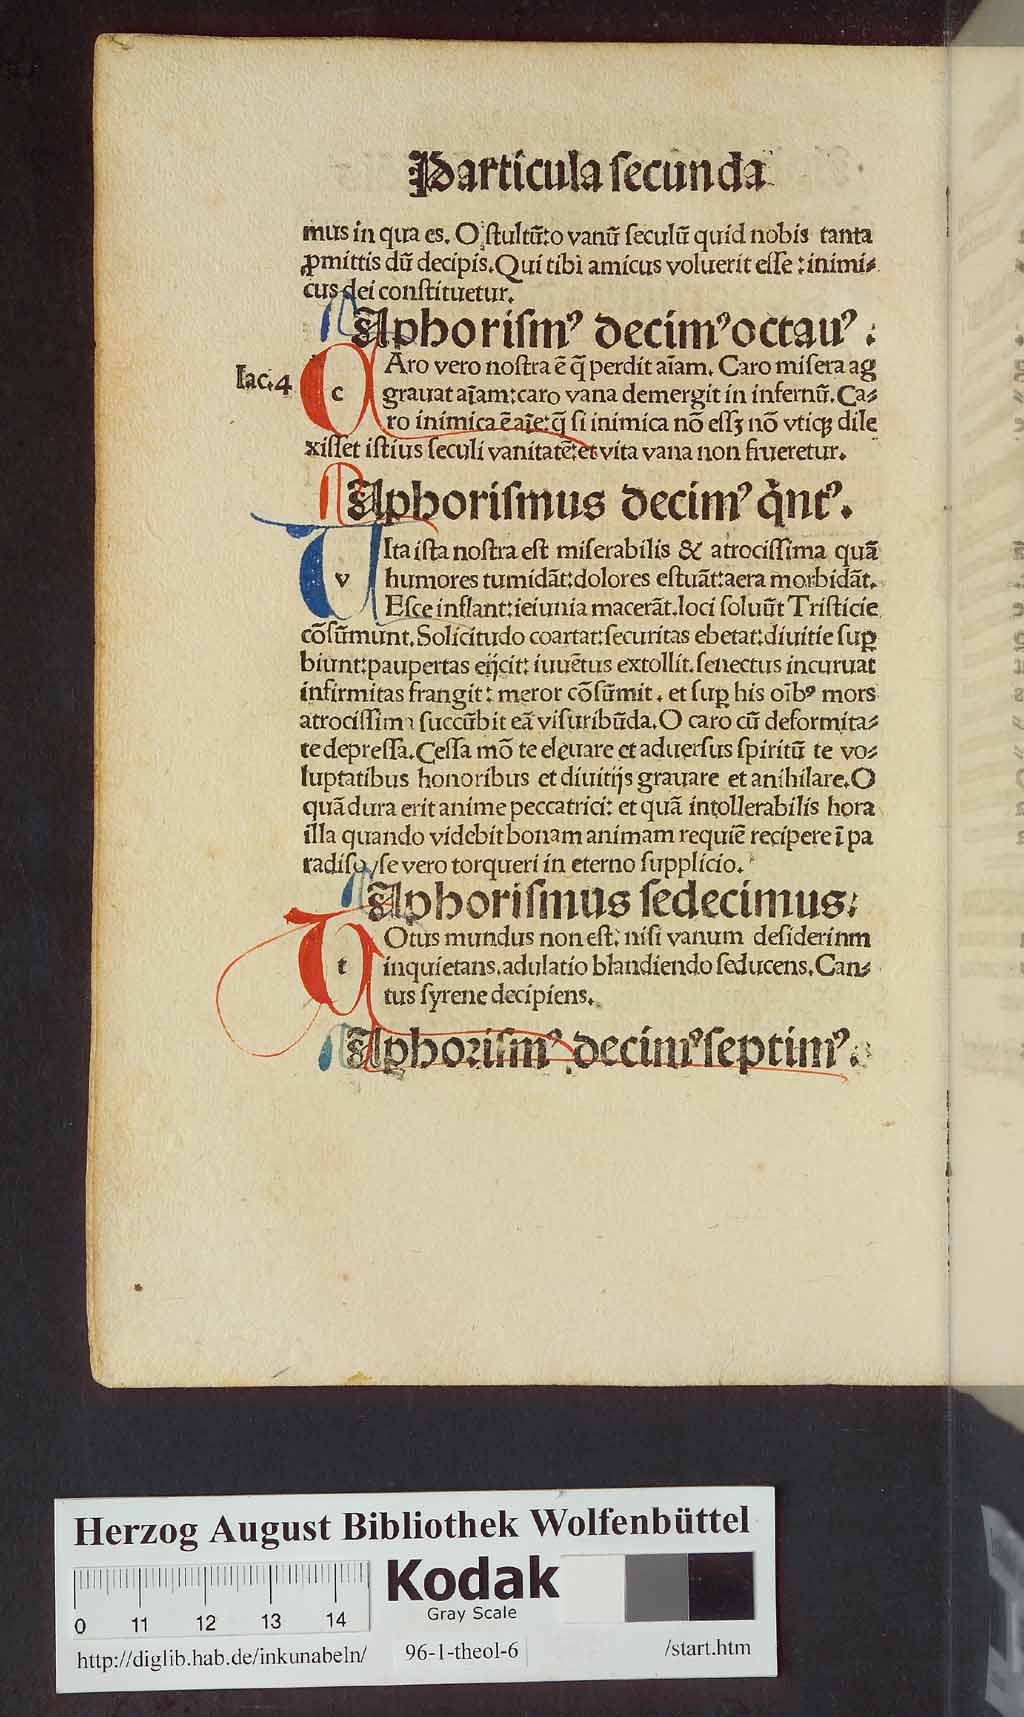 Particula ſecunda
mus in qua es. O ſtultū:o vanū ſeculū quid nobis tanta
ꝓmittis dū decipis. Qui tibi amicus voluerit eſſe : inimi⸗
cus dei conſtituetur.
Aphoriſmꝰ decimꝰ octauꝰ :
Iac.4
c Aro vero noſtra ē q̄ perdit aīam. Caro miſera ag
grauat aīam:caro vana demergit in infernū. Ca⸗
ro inimica ē aīe: q̄ ſi inimica nō eſſꝫ nō vtiqꝫ dile
xiſſet iſtius ſeculi vanitatē:et vita vana non frueretur.
Aphoriſmus decimꝰ q̇ntꝰ.
v Ita iſta noſtra eſt miſerabilis & atrociſſima quā
humores tumidāt:dolores eſtuāt:aera morbidāt.
Eſce inflant:ieiunia macerāt.loci ſoluūt Triſticie
cōſūmunt.Solicitudo coartat:ſecuritas ebetat:diuitie ſuꝑ
biunt:paupertas eijcit: iuuētus extollit.ſenectus incuruat
infirmitas frangit: meror cōſūmit. et ſuꝑ his oībꝰ mors
atrociſſima ſuccūbit eā viſuribūda.O caro cū deformita⸗
te depreſſa.Ceſſa mō te eleuare et aduerſus ſpiritū te vo⸗
luptatibus honoribus et diuitijs grauare et anihilare.O
quā dura erit anime peccatrici: et quā intollerabilis hora
illa quando videbit bonam animam requiē recipere ī pa
radiſo/ſe vero torqueri in eterno ſupplicio.
Aphoriſmus ſedecimus:
t Otus mundus non eſt: niſi vanum deſiderinm
inquietans.adulatio blandiendo ſeducens.Can⸗
tus ſyrene decipiens.
Aphoriſmꝰ decimꝰ ſeptimꝰ.
Herzog August Bibliothek Wolfenbüttel
Kodak
Gray Scale
0 11 12 13 14
http://diglib.hab.de/inkunabeln/ 96-1-theol-6 /start.htm